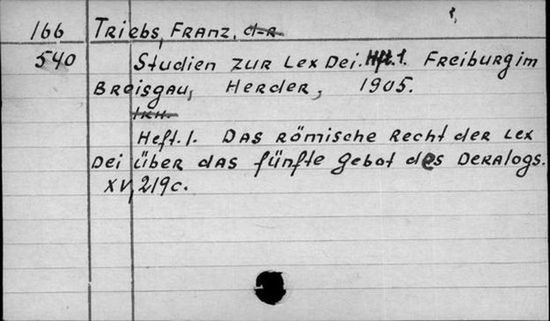 166 Triebs, Franz, d-r
540 Studien zur Lex Dei. Hft. 1. Freiburg im
Breisgau, Herder, 1905.
Heft. 1. Das römische Recht der Lex
Dei über das fünfte Gebot des Dekalogs.
XV, 219c.